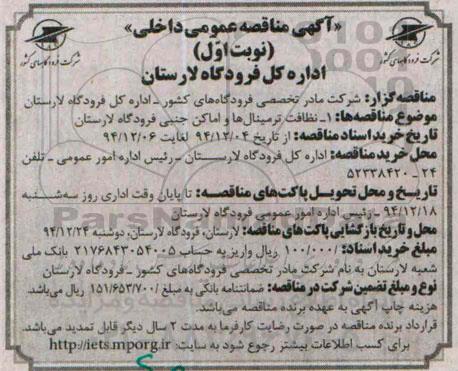 «آگهی مناقصه عمومی داخلی»
(نوبت اوّل)
اداره کل فرودگاه لارستان
شرکت فرودگاههای کشور
شرکت فرودگاههای کشور
مناقصه گزار: شرکت مادر تخصصی فرودگاه‌های کشور ـ اداره کل فرودگاه لارستان
موضوع مناقصه‌ها: ۱ـ نظافت ترمینال‌ها و اماکن جنبی فرودگاه لارستان
تاریخ خرید اسناد مناقصه: از تاریخ ۹۴/۱۲/۰۴ لغایت ۹۴/۱۲/۰۶
محل خرید مناقصه: اداره کل فرودگاه لارستان ـ رئیس اداره امور عمومی ـ تلفن
۲۴ ـ ۵۲۳۳۸۴۲۰
تاریخ و محل تحویل پاکت‌های مناقصه: تا پایان وقت اداری روز سه‌شنبه
۹۴/۱۲/۱۸ ـ رئیس اداره امور عمومی فرودگاه لارستان
محل و تاریخ بازگشایی پاکت‌های مناقصه: لارستان، فرودگاه لارستان، دوشنبه ۹۴/۱۲/۲۴
مبلغ خرید اسناد: ۱۰۰/۰۰۰ ریال واریز به حساب ۲۱۷۶۸۴۳۰۵۴۰۰۵ بانک ملی
شعبه لارستان به نام شرکت مادر تخصصی فرودگاه‌های کشور ـ فرودگاه لارستان
نوع و مبلغ تضمین شرکت در مناقصه: ضمانتنامه بانکی به مبلغ ۱۵۱/۶۵۳/۷۰۰ ریال می‌باشد.
هزینه چاپ آگهی به عهده برنده مناقصه می‌باشد.
قرارداد برنده مناقصه در صورت رضایت کارفرما به مدت ۲ سال دیگر قابل تمدید می‌باشد.
برای کسب اطلاعات بیشتر رجوع شود به سایت: http://iets.mporg.ir